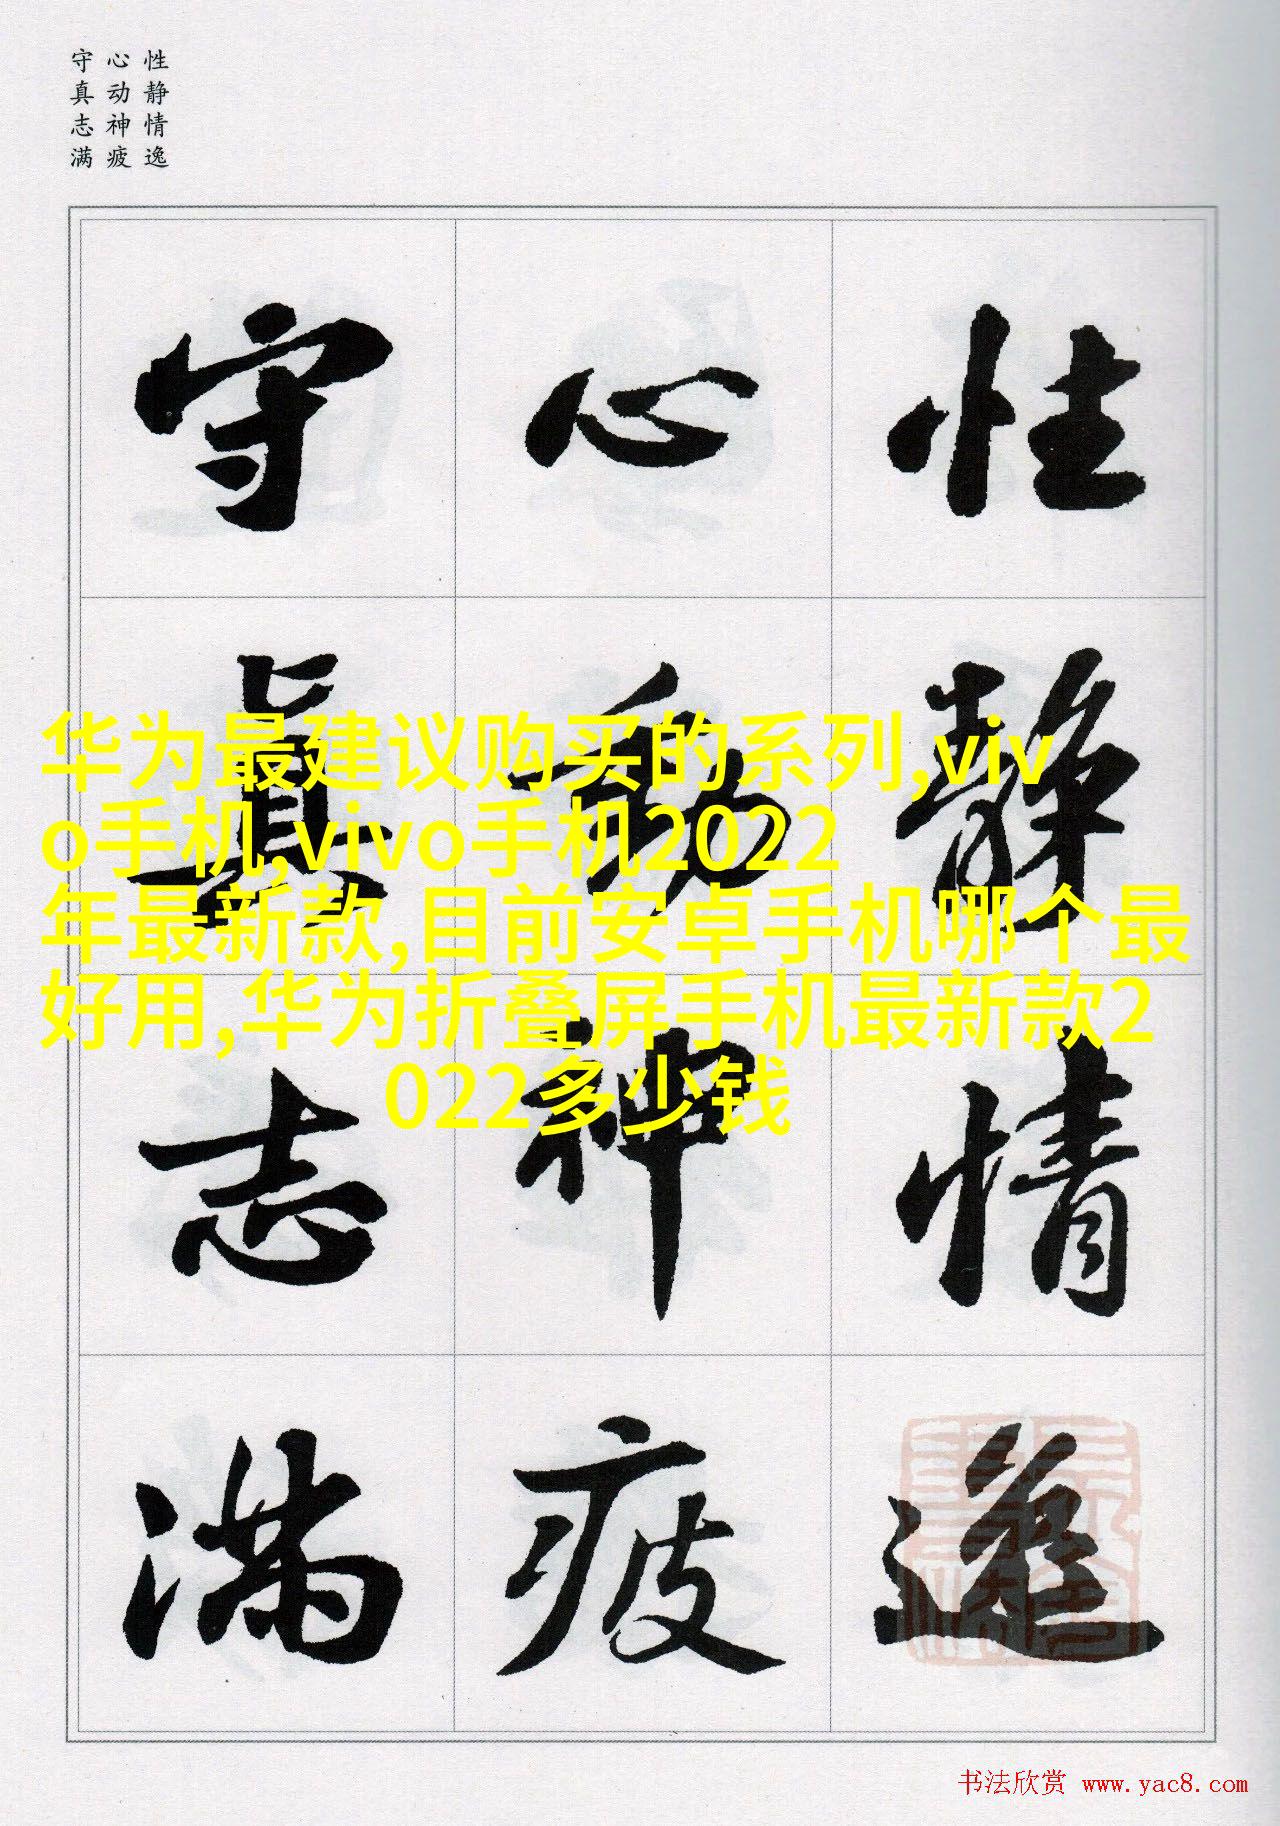 性静情逸
心动神疲
守真志满
性静情逸
心動神疲
守真志满
华为最建议购买的系列,viv
o手机,vivo手机2022
年最新款,目前安卓手机哪个最
好用,华为折叠屏手机最新款2
022多少钱
书法欣赏 www.yac8.com